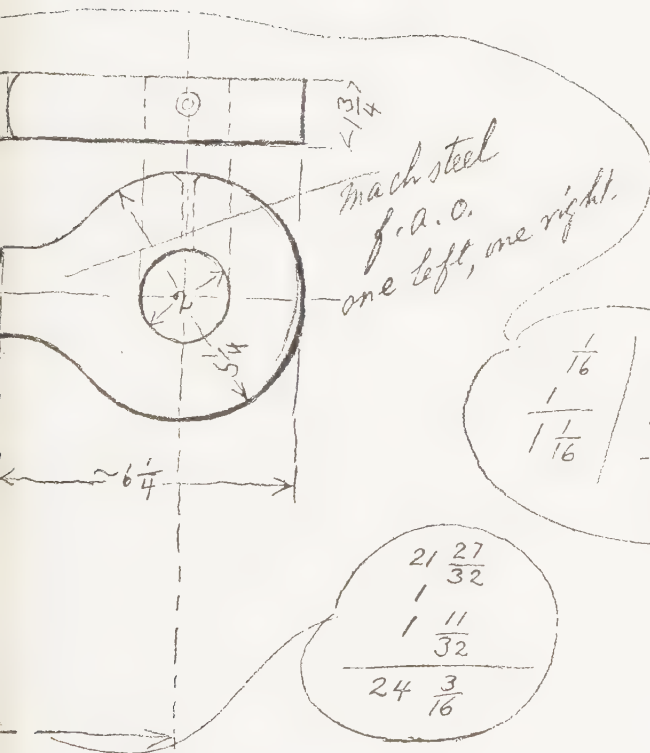 1 3/4
mach steel
f.a.o.
one left, one right.
2
5 1/4
~6 1/4
1/16
1
1 1/16
21 27/32
1
1 11/32
24 3/16